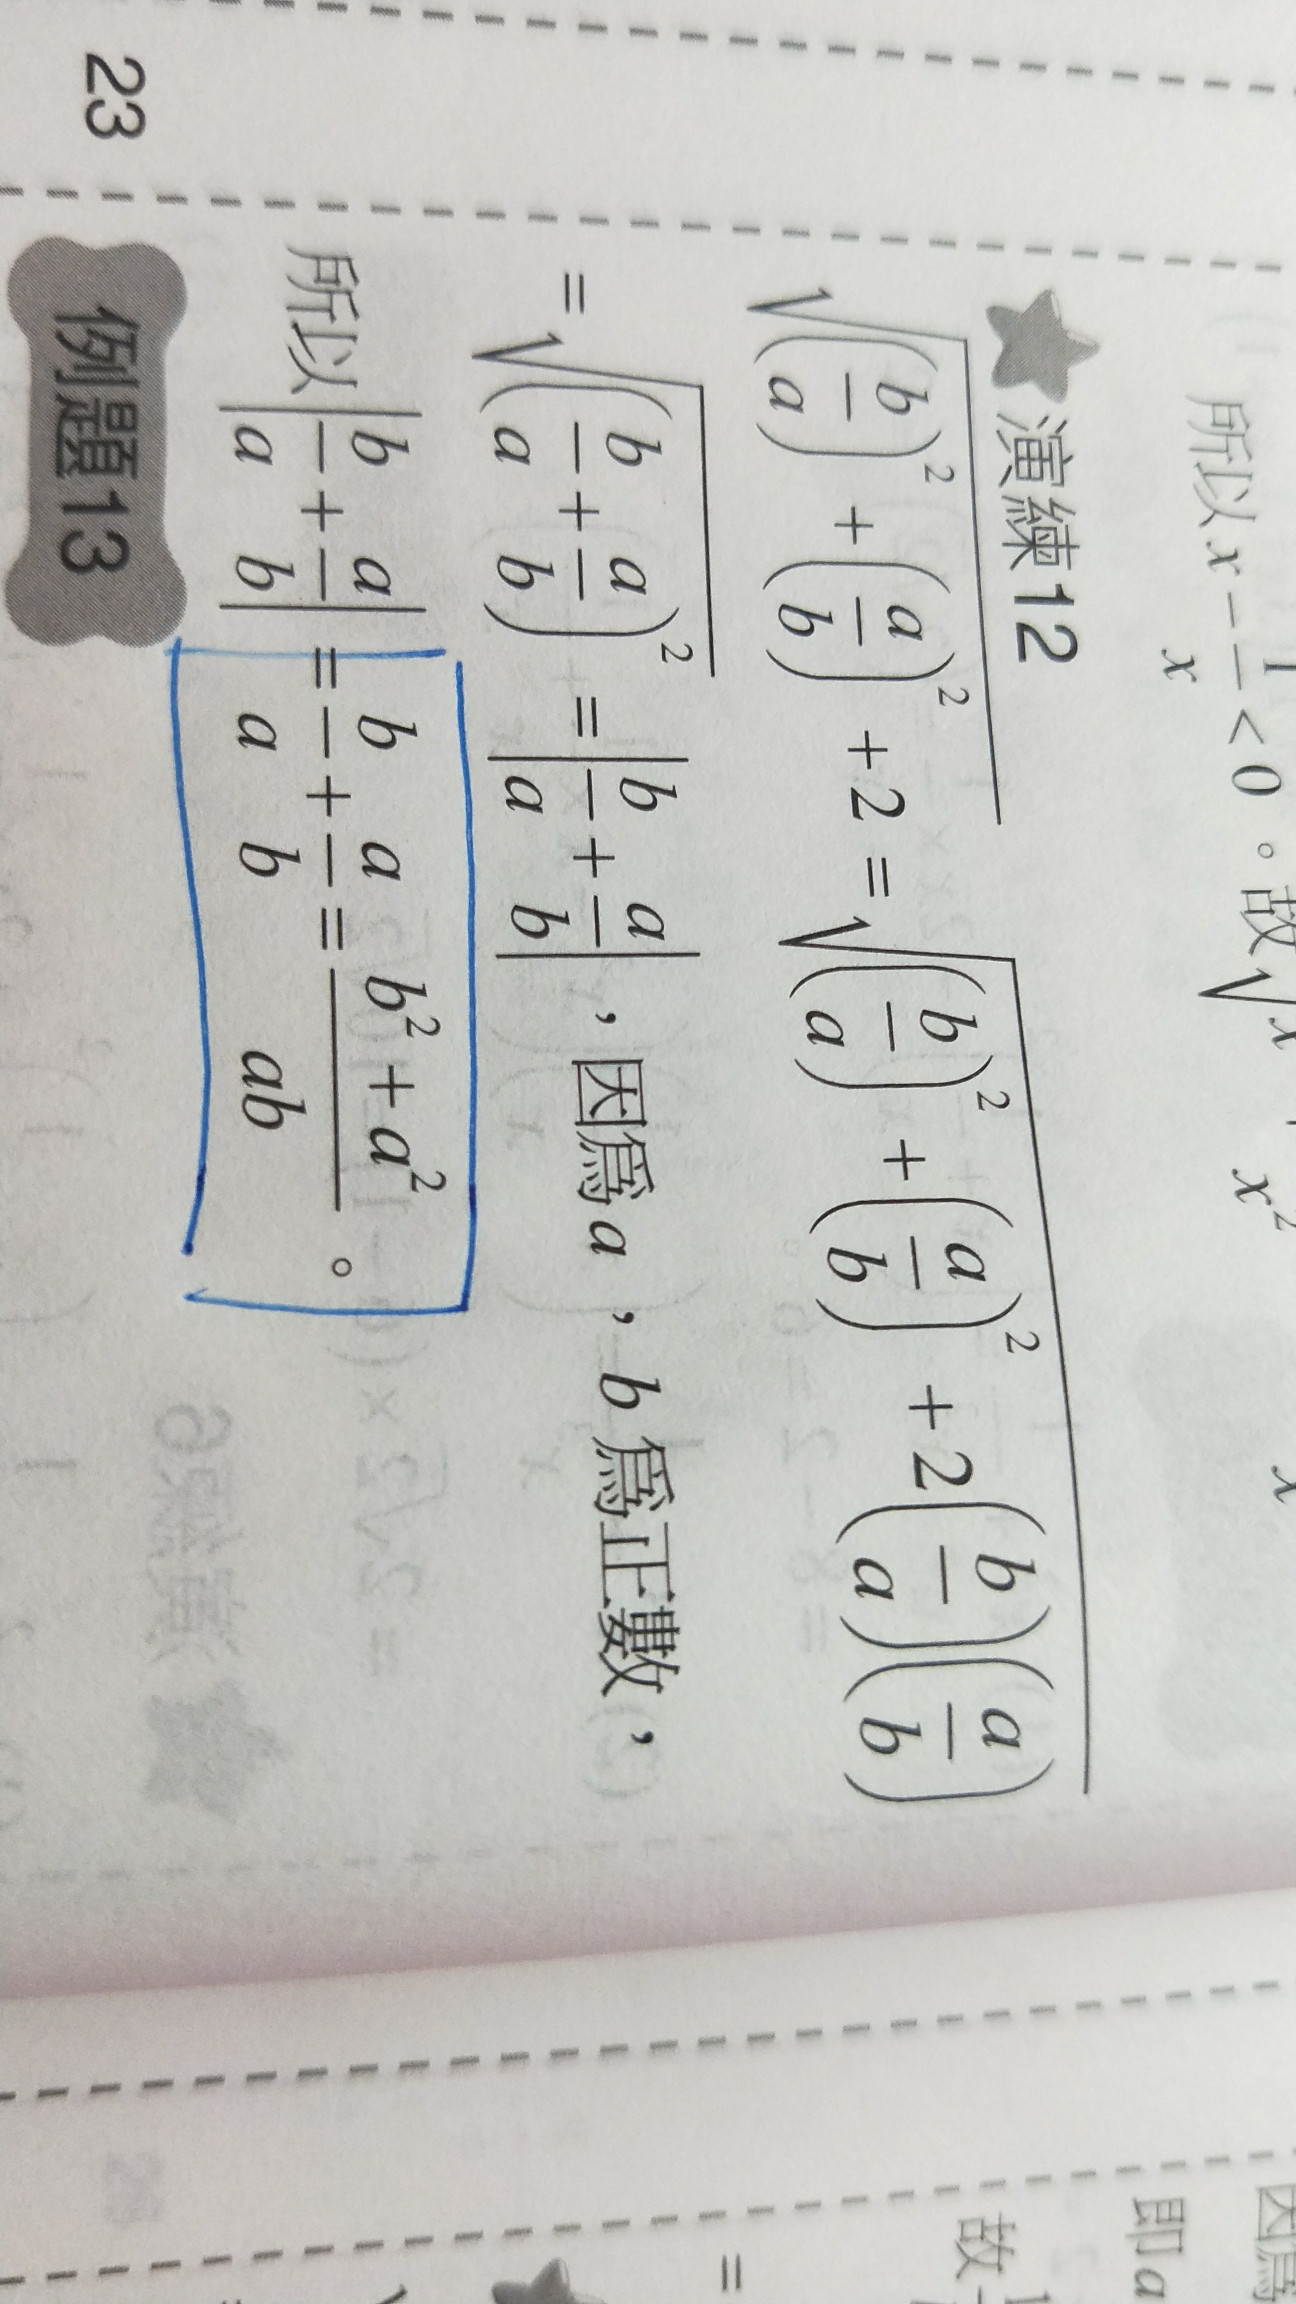 所以 x − 1/x < 0。故√x
★演練12
√((b/a)² + (a/b)² + 2) = √((b/a)² + (a/b)² + 2(b/a)(a/b))
= √((b/a + a/b)²) = |b/a + a/b|，因爲 a，b 爲正數，
所以 |b/a + a/b| = b/a + a/b = (b² + a²)/ab。
例題13
23
因爲
即 a
故
=